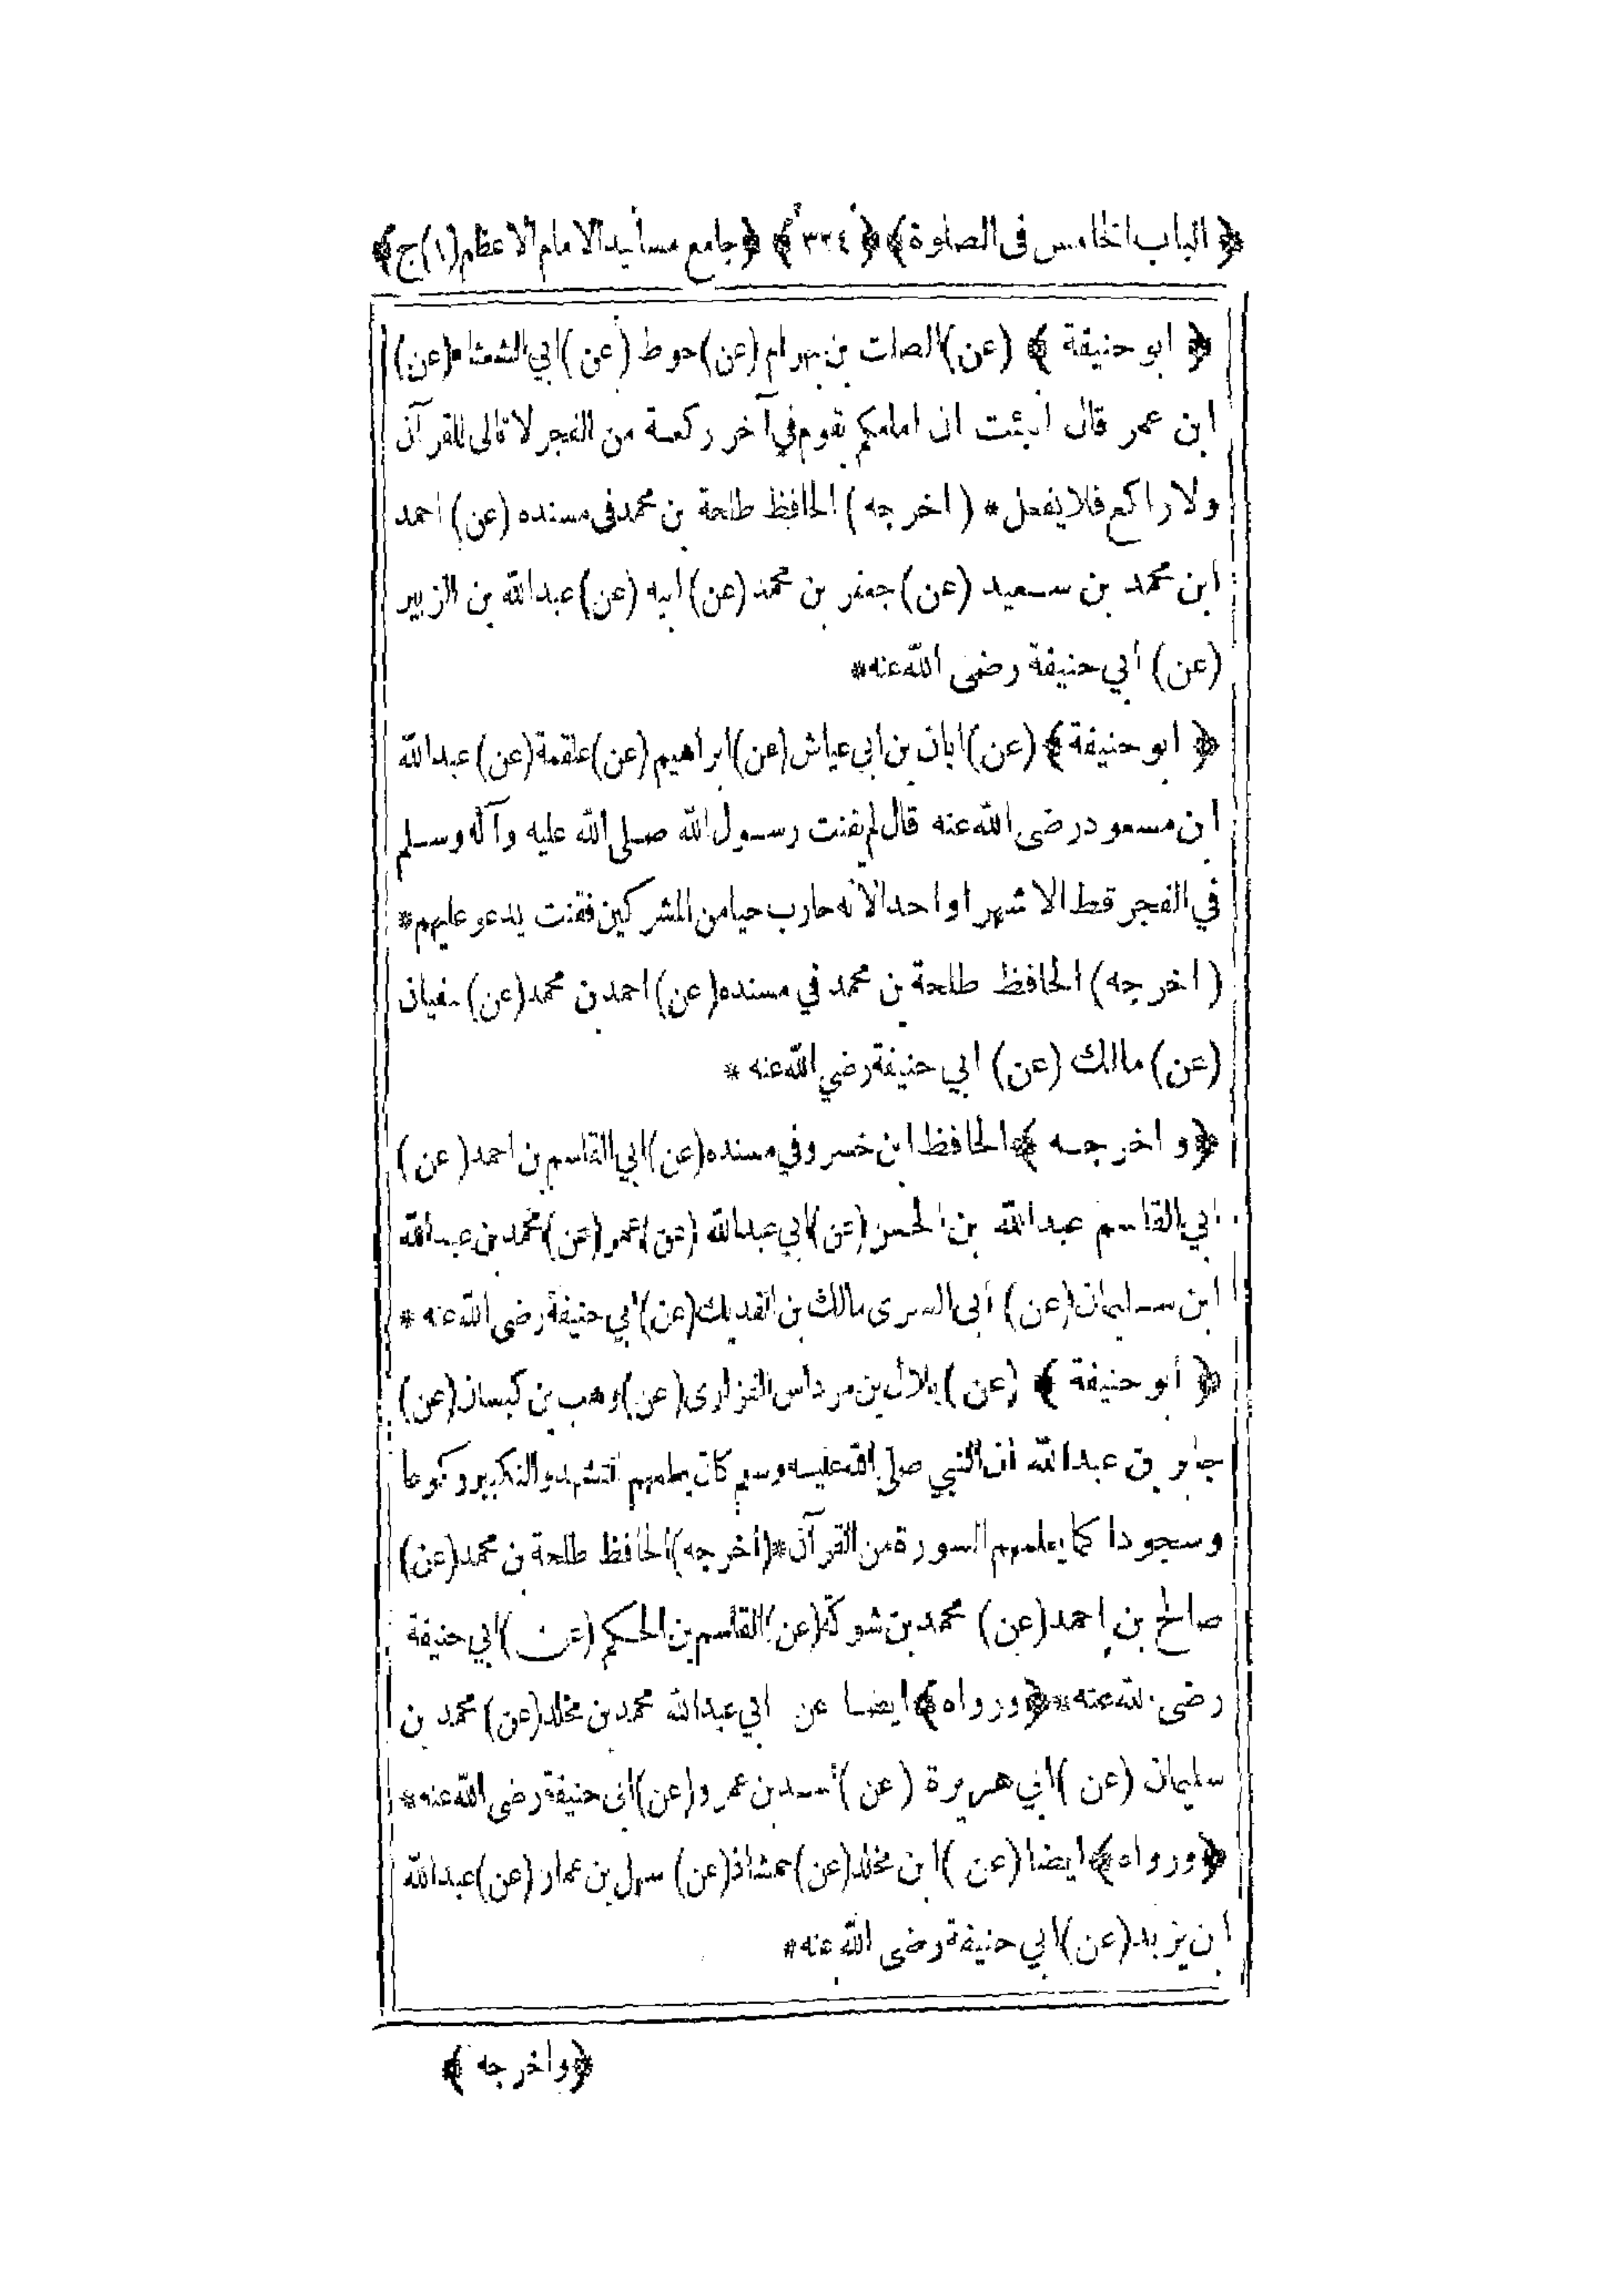 ﴿ الباب الخامس فى الصلوة ﴾ ﴿ ٣٣٤ ﴾ ﴿ جامع مسانيد الامام الاعظم (١) ج ﴾
﴿ ابو حنيفة ﴾ (عن) الصلت بن بهرام (عن) حوط (عن) ابي الشعثاء (عن)
ابن عمر قال انبئت ان امامكم يقوم في آخر ركعة من الفجر لا تالى للقرآن
ولا راكع فلا يفعل * (اخرجه) الحافظ طلحة بن محمد فى مسنده (عن) احمد
ابن محمد بن سعيد (عن) جعفر بن محمد (عن) ابيه (عن) عبدالله بن الزبير
(عن) ابي حنيفة رضى الله عنه *
﴿ ابو حنيفة ﴾ (عن) ابان بن ابي عياش (عن) ابراهيم (عن) علقمة (عن) عبدالله
ابن مسعود رضى الله عنه قال لم يقنت رسول الله صلى الله عليه وآله وسلم
في الفجر قط الا شهرا واحدا لانه حارب حيا من المشركين فقنت يدعو عليهم *
(اخرجه) الحافظ طلحة بن محمد في مسنده (عن) احمد بن محمد (عن) سفيان
(عن) مالك (عن) ابي حنيفة رضي الله عنه *
﴿ واخرجه ﴾ الحافظ ابن خسرو في مسنده (عن) ابي القاسم بن احمد (عن)
ابي القاسم عبدالله بن الحسن (عن) ابي عبدالله (عن) عمر (عن) محمد بن عبدالله
ابن سليمان (عن) أبى السرى مالك بن الفديك (عن) ابي حنيفة رضى الله عنه *
﴿ أبو حنيفة ﴾ (عن) بلال بن مرداس الفزارى (عن) وهب بن كيسان (عن)
جابر بن عبدالله ان النبي صلى الله عليه وسلم كان يعلمهم التشهد والتكبير وركوعا
وسجودا كما يعلمهم السورة من القرآن * (أخرجه) الحافظ طلحة بن محمد (عن)
صالح بن احمد (عن) محمد بن شوكة (عن) القاسم بن الحكم (عن) ابي حنيفة
رضى الله عنه * ﴿ ورواه ﴾ ايضا عن ابي عبدالله محمد بن مخلد (عن) محمد بن
سليمان (عن) ابي هريرة (عن) أسد بن عمرو (عن) ابى حنيفة رضى الله عنه *
﴿ ورواه ﴾ ايضا (عن) ابن مخلد (عن) حمشاذ (عن) سهل بن عمار (عن) عبدالله
ابن يزيد (عن) ابي حنيفة رضى الله عنه *
﴿ واخرجه ﴾